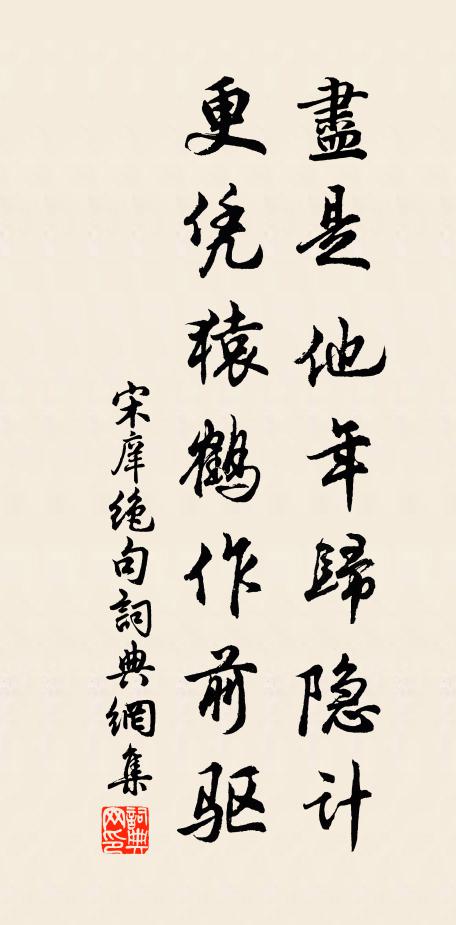 盡是他年歸隐计
更凭猿鶴作前驱
宋庠绝句詞典網集
詞典网印